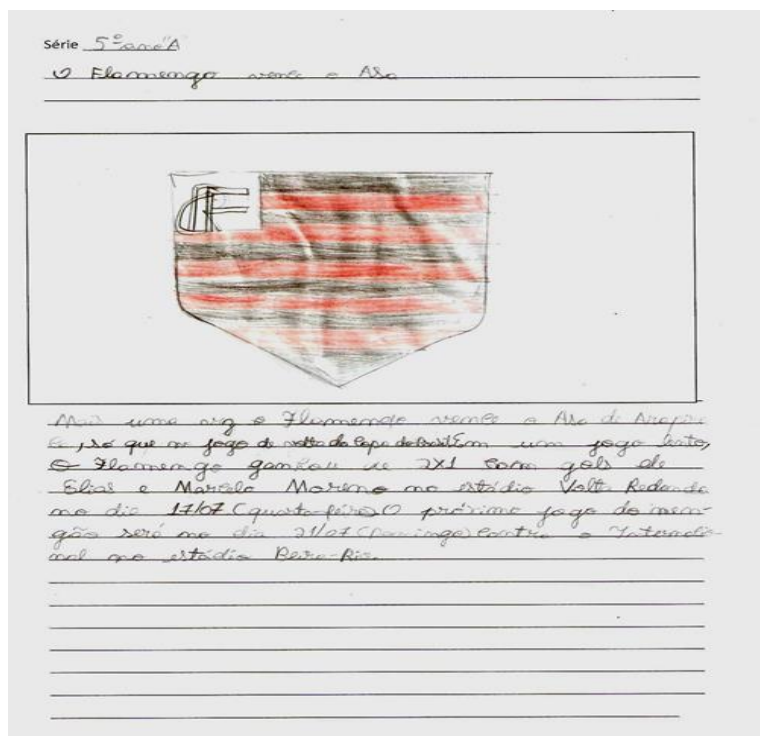 Série 5º ano "A"
O Flamengo vence o Asa
Mais uma vez o Flamengo vence o Asa de Arapira
ca, só que no jogo de volta da Copa do Brasil Em um jogo lento,
O Flamengo ganhou de 2X1 com gols de
Elias e Marcelo Moreno no estádio Volta Redonda
no dia 17/07 (quarta-feira) O próximo jogo do men-
gão será no dia 21/07 (Domingo) Contra o Internacio-
nal no estádio Beira-Rio.